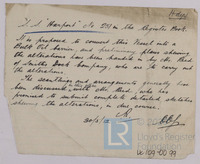 S.S. Harport No. 2111 in the Register Book.
It is proposed to convert this Vessel into a
Bulk Oil barge, and preliminary plans showing
the alterations has been handed in by Mr Reid
of Smiths Dock Company, who are to carry out
the alterations.
The scantlings and arrangements generally has
been discussed with Mr. Reid, who has
promised to submit complete detailed sketches
showing the alterations, in due course.
20/5/12
Lloyd's Register
Foundation